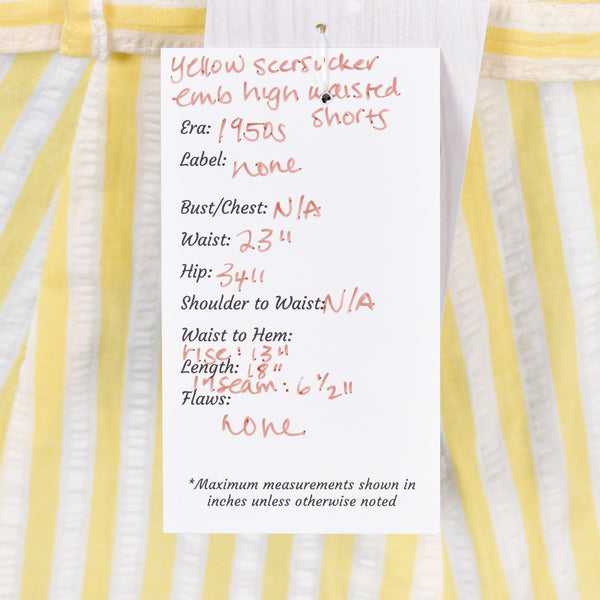 yellow seersucker
emb high waisted
shorts
Era: 1950s
Label: none
Bust/Chest: N/A
Waist: 23"
Hip: 34"
Shoulder to Waist: N/A
Waist to Hem:
rise: 13"
Length: 18"
inseam: 6 1/2"
Flaws:
none
*Maximum measurements shown in
inches unless otherwise noted